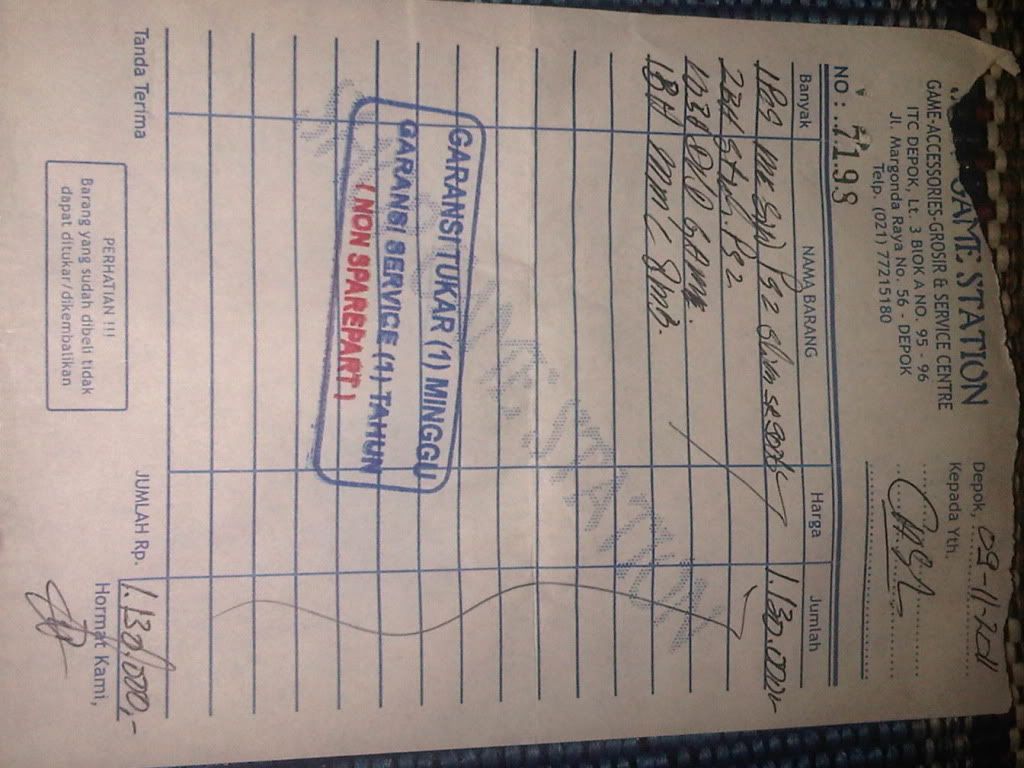 GAME STATION
GAME-ACCESSORIES-GROSIR & SERVICE CENTRE
ITC DEPOK, Lt. 3 BlOK A NO. 95 - 96
Jl. Margonda Raya No. 56 - DEPOK
Telp. (021) 77215180
Depok, 09-11-2011
Kepada Yth.
CASH
NO : 7199
Banyak NAMA BARANG Harga Jumlah
Ps2 Slim 1.130.000,-
2BH Stick Ps2
DVD GAME
1BH MMC 8MB.
GAME STATION
GARANSI TUKAR (1) MINGGU
GARANSI SERVICE (1) TAHUN
( NON SPAREPART )
Tanda Terima
JUMLAH Rp. 1.130.000,-
PERHATIAN !!!
Barang yang sudah dibeli tidak
dapat ditukar/dikembalikan
Hormat Kami,